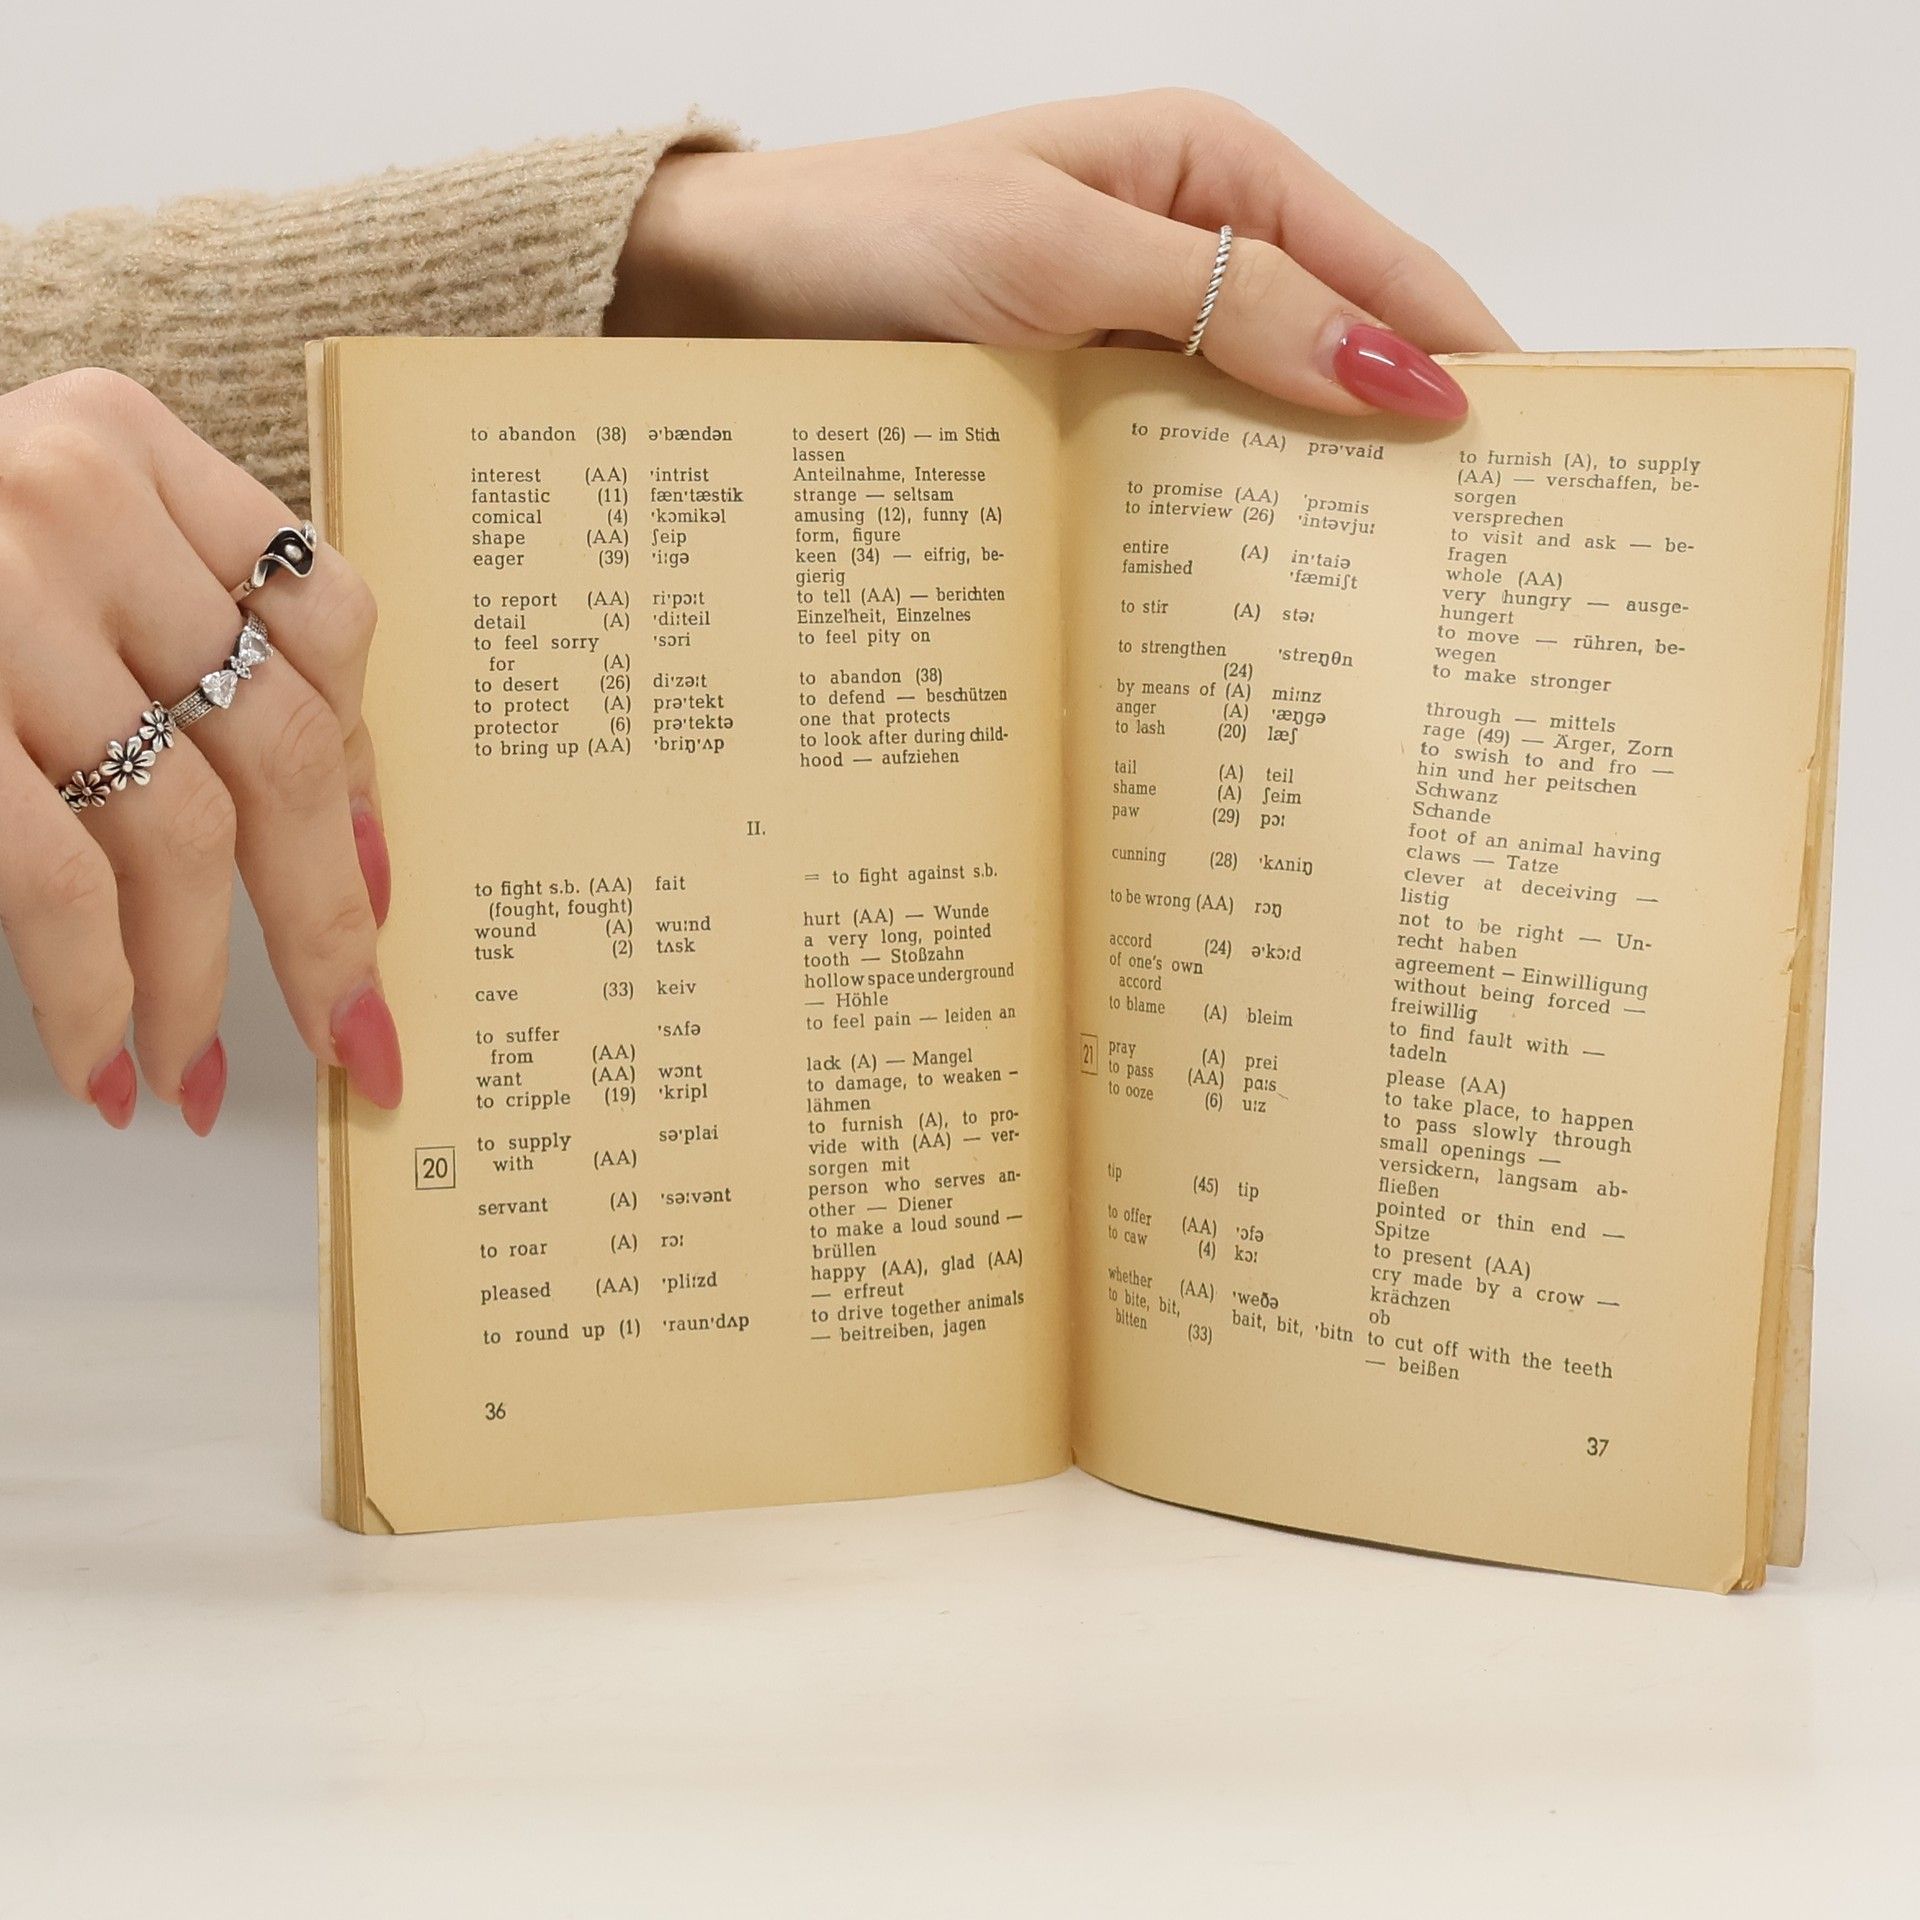 to abandon (38) ə'bændən to desert (26) — im Stich
lassen
interest (AA) 'intrist Anteilnahme, Interesse
fantastic (11) fæn'tæstik strange — seltsam
comical (4) 'kɔmikəl amusing (12), funny (A)
shape (AA) ʃeip form, figure
eager (39) 'i:gə keen (34) — eifrig, be-
gierig
to report (AA) ri'pɔ:t to tell (AA) — berichten
detail (A) 'di:teil Einzelheit, Einzelnes
to feel sorry 'sɔri to feel pity on
for (A)
to desert (26) di'zə:t to abandon (38)
to protect (A) prə'tekt to defend — beschützen
protector (6) prə'tektə one that protects
to bring up (AA) 'briŋ'ʌp to look after during child-
hood — aufziehen
II.
to fight s.b. (AA) fait = to fight against s.b.
(fought, fought)
wound (A) wu:nd hurt (AA) — Wunde
tusk (2) tʌsk a very long, pointed
tooth — Stoßzahn
cave (33) keiv hollow space underground
— Höhle
to suffer 'sʌfə to feel pain — leiden an
from (AA)
want (AA) wɔnt lack (A) — Mangel
to cripple (19) 'kripl to damage, to weaken –
lähmen
to supply sə'plai to furnish (A), to pro-
20 with (AA) vide with (AA) — ver-
sorgen mit
servant (A) 'sə:vənt person who serves an-
other — Diener
to roar (A) rɔ: to make a loud sound —
brüllen
pleased (AA) 'pli:zd happy (AA), glad (AA)
— erfreut
to round up (1) 'raun'dʌp to drive together animals
— beitreiben, jagen
36
to provide (AA) prə'vaid to furnish (A), to supply
(AA) — verschaffen, be-
sorgen
to promise (AA) 'prɔmis versprechen
to interview (26) 'intəvju: to visit and ask — be-
fragen
entire (A) in'taiə whole (AA)
famished 'fæmiʃt very hungry — ausge-
hungert
to stir (A) stə: to move — rühren, be-
wegen
to strengthen 'streŋθn to make stronger
(24)
by means of (A) mi:nz through — mittels
anger (A) 'æŋgə rage (49) — Ärger, Zorn
to lash (20) læʃ to swish to and fro —
hin und her peitschen
tail (A) teil Schwanz
shame (A) ʃeim Schande
paw (29) pɔ: foot of an animal having
claws — Tatze
cunning (28) 'kʌniŋ clever at deceiving —
listig
to be wrong (AA) rɔŋ not to be right — Un-
recht haben
accord (24) ə'kɔ:d agreement – Einwilligung
of one's own without being forced —
accord freiwillig
to blame (A) bleim to find fault with —
tadeln
21 pray (A) prei please (AA)
to pass (AA) pɑ:s to take place, to happen
to ooze (6) u:z to pass slowly through
small openings —
versickern, langsam ab-
fließen
tip (45) tip pointed or thin end —
Spitze
to offer (AA) 'ɔfə to present (AA)
to caw (4) kɔ: cry made by a crow —
krächzen
whether (AA) 'weðə ob
to bite, bit, bait, bit, 'bitn to cut off with the teeth
bitten (33) — beißen
37